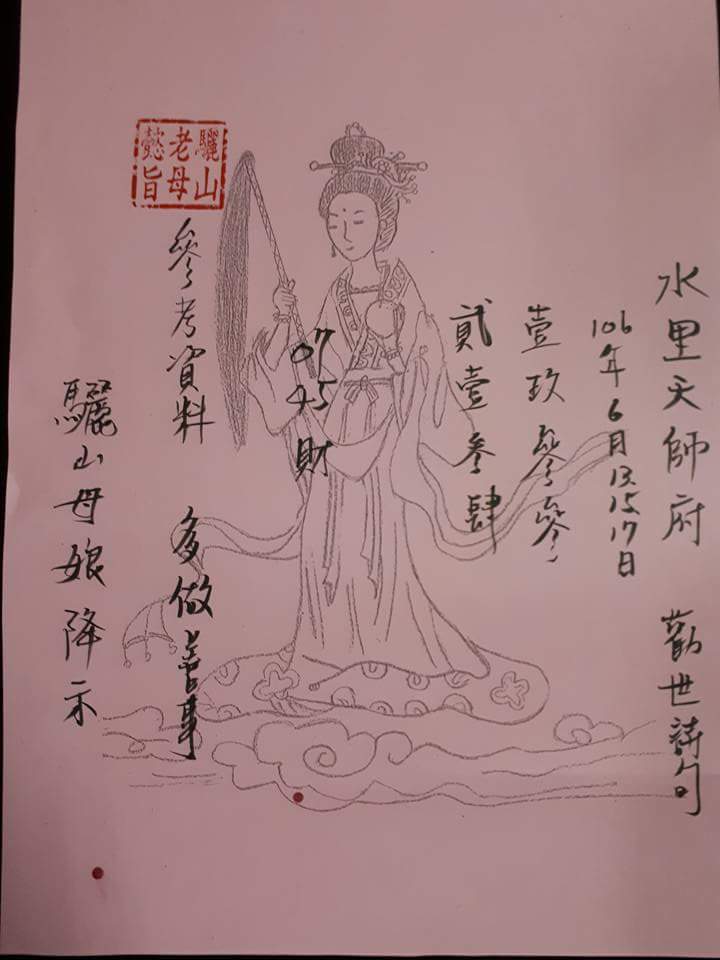 水里天師府 勸世詩句
106年6月13.15.17日
壹玖參參
貳壹叁肆
07 45 財
參考資料 多做善事
驪山母娘降示
驪山老母懿旨